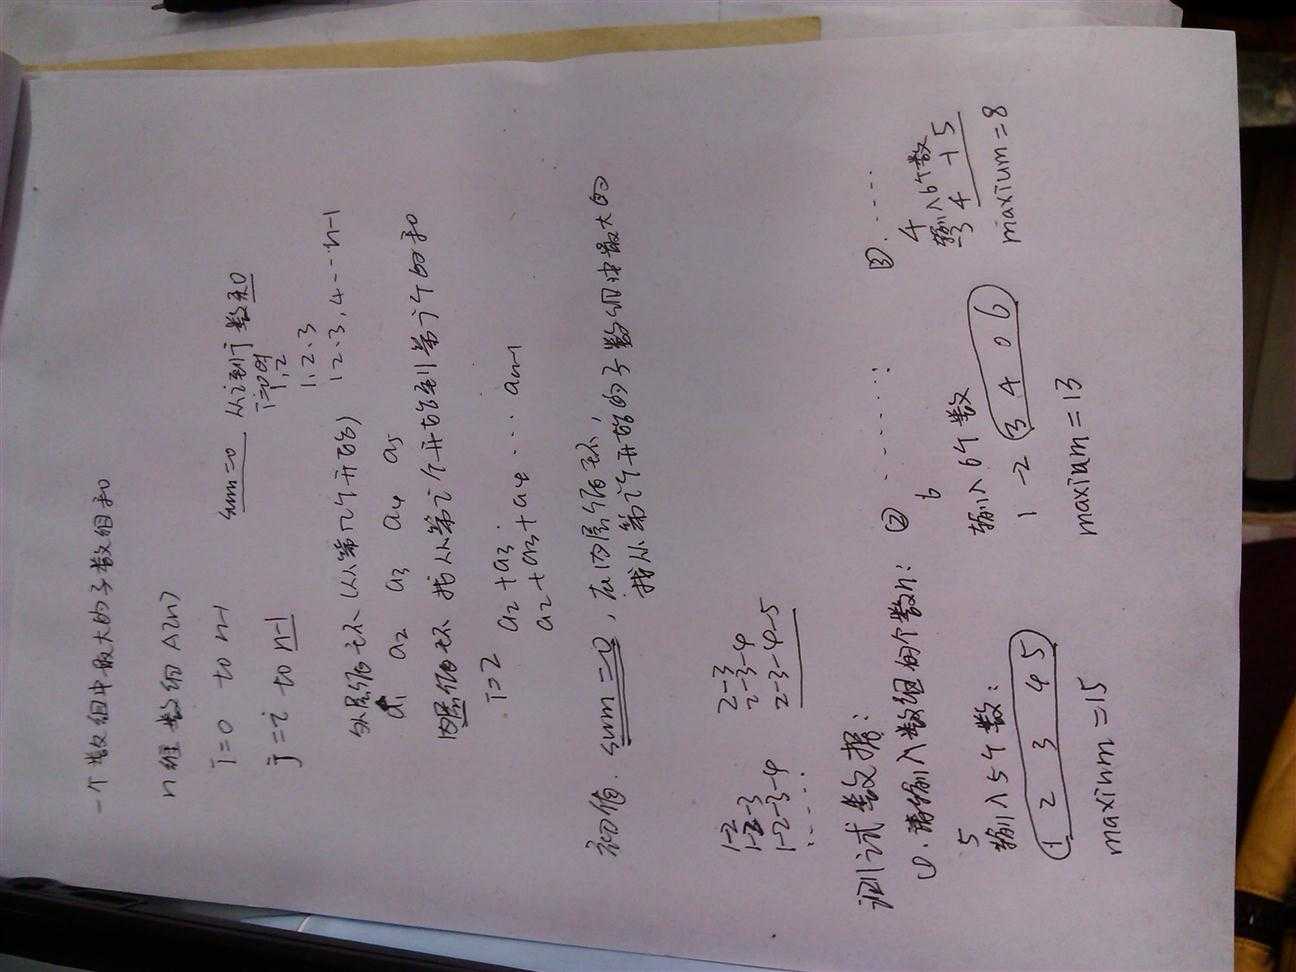 一个数组中最大的子数组和
n维数组A[n]
i=0 to n-1
j=i to n-1
sum=0 从i到j 数求和
1,2
1,2,3
1,2,3,4…n-1
外层循环(从第几个开始)
a1 a2 a3 a4 a5
内层循环 找从第i个开始到第j个的和
i=2
a2+a3
a2+a3+a4…an-1
初值.sum=0,在内层循环,
找从第i个开始的子数组中最大的
1-2
1-2-3
1-2-3-4
……
2-3
2-3-4
2-3-4-5
测试数据:
①.请输入数组的个数n:
5
输入5个数:
1 2 3 4 5
maxium=15
② ……:
6
输入6个数
1 -2 3 4 0 6
maxium=13
③.……
4
输入6个数
maxium=8